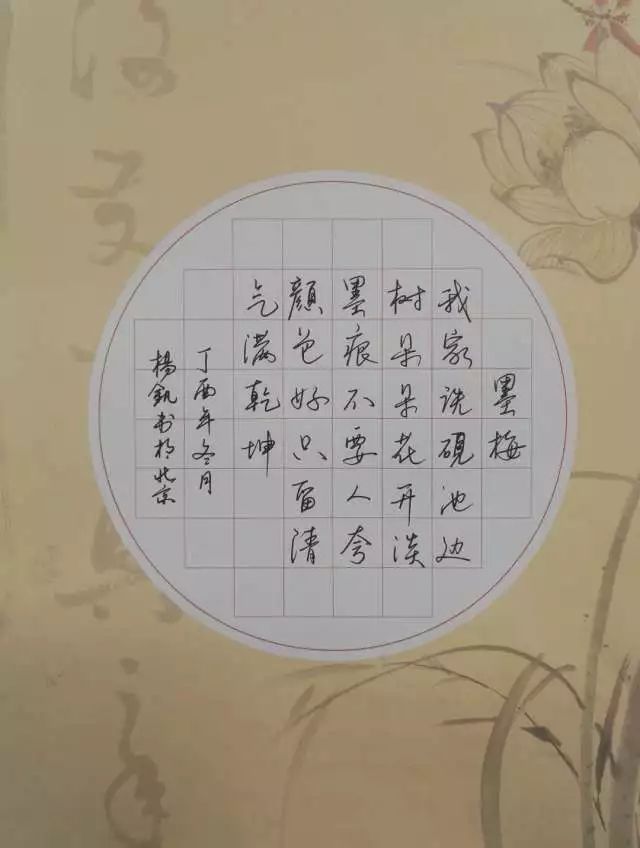 墨梅
我家洗硯池边
树朵朵花开淡
墨痕不要人夸
顏色好只留清
气满乾坤
丁酉年冬月
楊书於北京